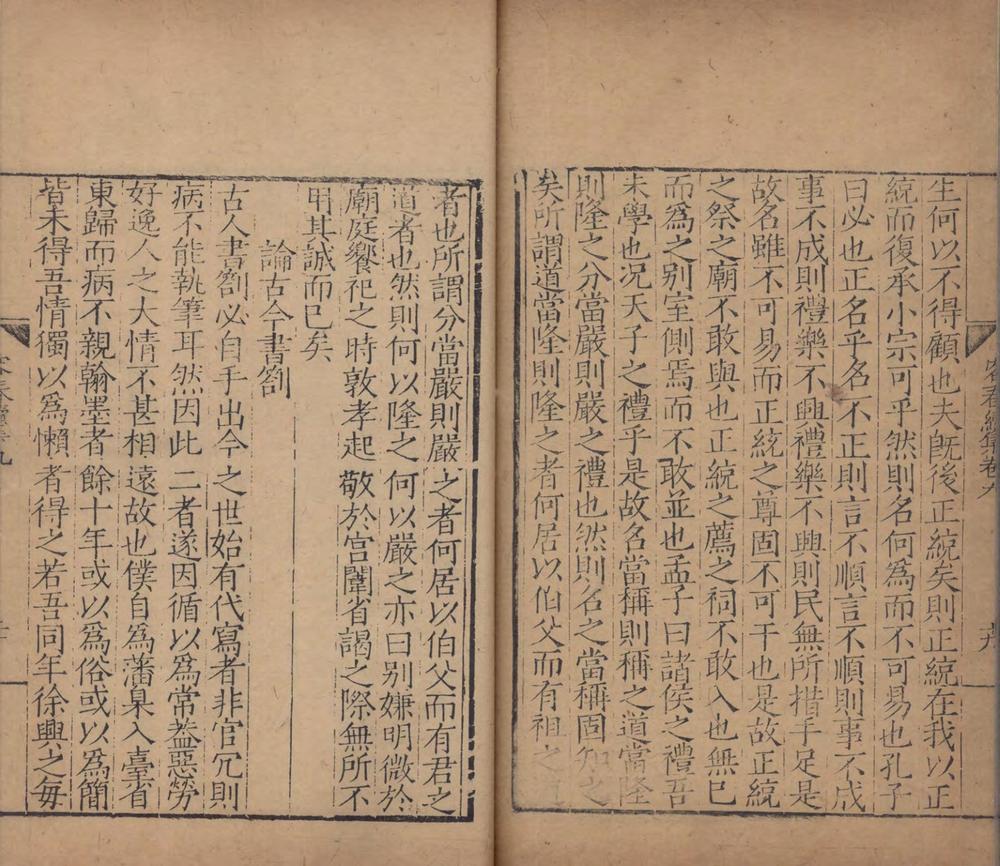 容春續集卷九
生何以不得顧也夫旣後正統矣則正統在我以正
統而復承小宗可乎然則名何爲而不可易也孔子
曰必也正名乎名不正則言不順言不順則事不成
事不成則禮樂不興禮樂不興則民無所措手足是
故名雖不可易而正統之尊固不可干也是故正統
之祭之廟不敢與也正統之薦之祠不敢入也無已
而爲之别室側焉而不敢並也孟子曰諸侯之禮吾
未學也况天子之禮乎是故名當稱則稱之道當隆
則隆之分當嚴則嚴之禮也然則名之當稱固知之
矣所謂道當隆則隆之者何居以伯父而有祖之
者也所謂分當嚴則嚴之者何居以伯父而有君之
道者也然則何以隆之何以嚴之亦曰别嫌明微於
廟庭饗祀之時敦孝起敬於宫闈省謁之際無所不
用其誠而已矣
論古今書劄
古人書劄必自手出今之世始有代寫者非官冗則
病不能執筆耳然因此二者遂因循以爲常蓋惡勞
好逸人之大情不甚相遠故也僕自爲藩臬入臺省
東歸而病不親翰墨者餘十年或以爲俗或以爲簡
皆未得吾情獨以爲懶者得之若吾同年徐興之每